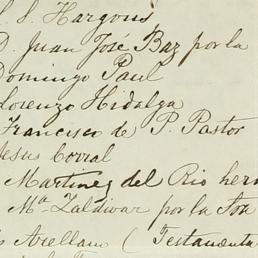 S. Hargous
D. Juan José Baz por la
Domingo Paul
Lorenzo Hidalga
Francisco de P. Pastor
Jesus Corral
Martinez del Rio her
Mª Zaldivar por la
Arellano (Testamenta